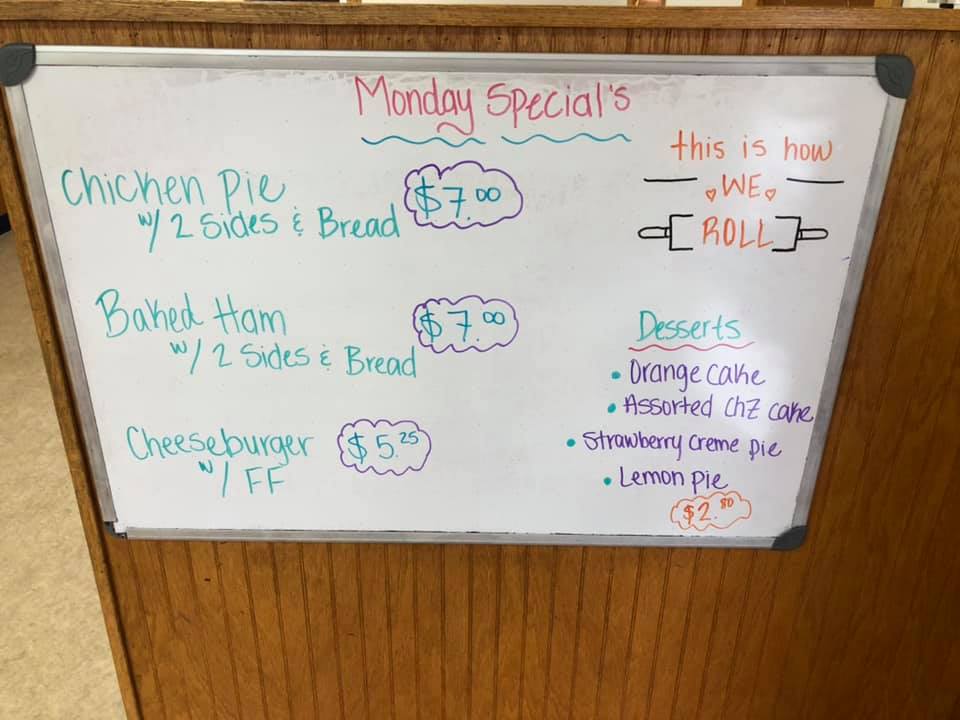 Monday Special's
Chicken Pie $7.00
w/ 2 Sides & Bread
Baked Ham $7.00
w/ 2 Sides & Bread
Cheeseburger $5.25
w/ FF
this is how
WE
ROLL
Desserts
• Orange cake
• Assorted chz cake
• Strawberry creme pie
• Lemon pie
$2.80